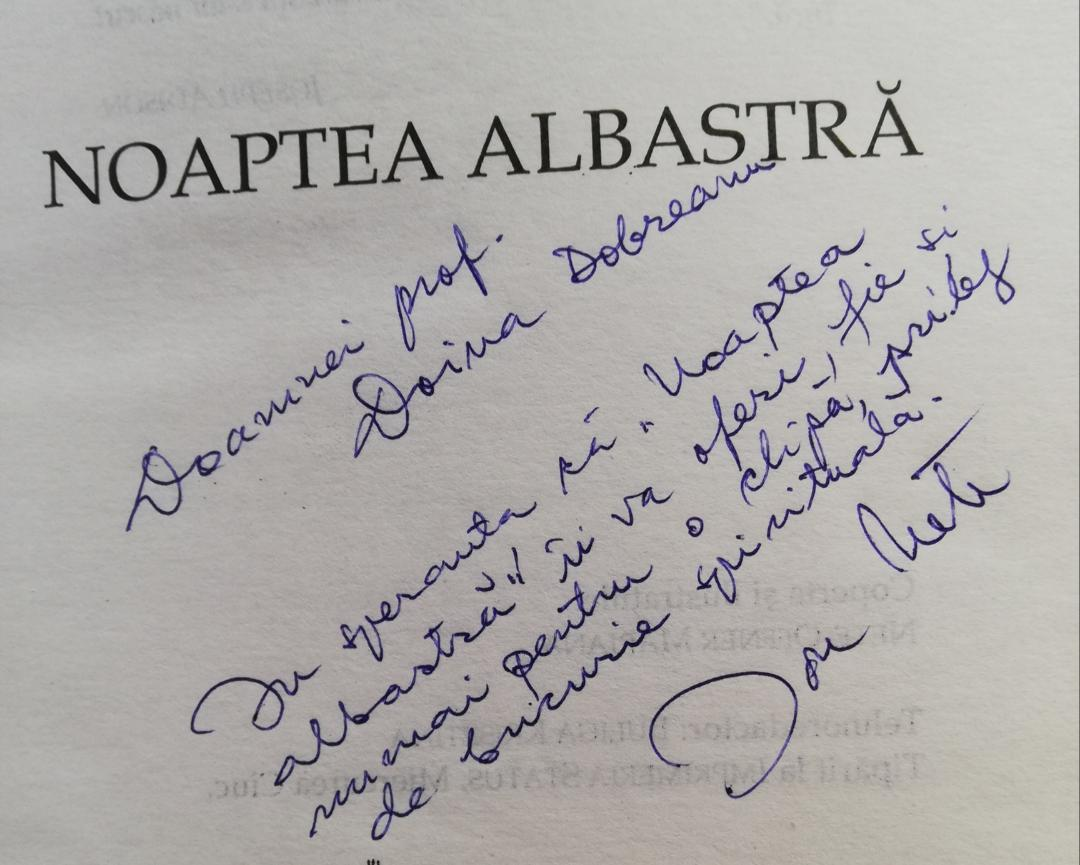 NOAPTEA ALBASTRĂ
Doamnei prof.
Doina Dobreanu
In speranta că "Noaptea
albastră" îi va oferi, fie si
numai pentru o clipă, prilej
de bucurie spirituală.
Ion
Coperta și ilustrații:
Tehnoredactor:
Tipărit la IMPRIMERIA STATUS, Miercurea Ciuc,